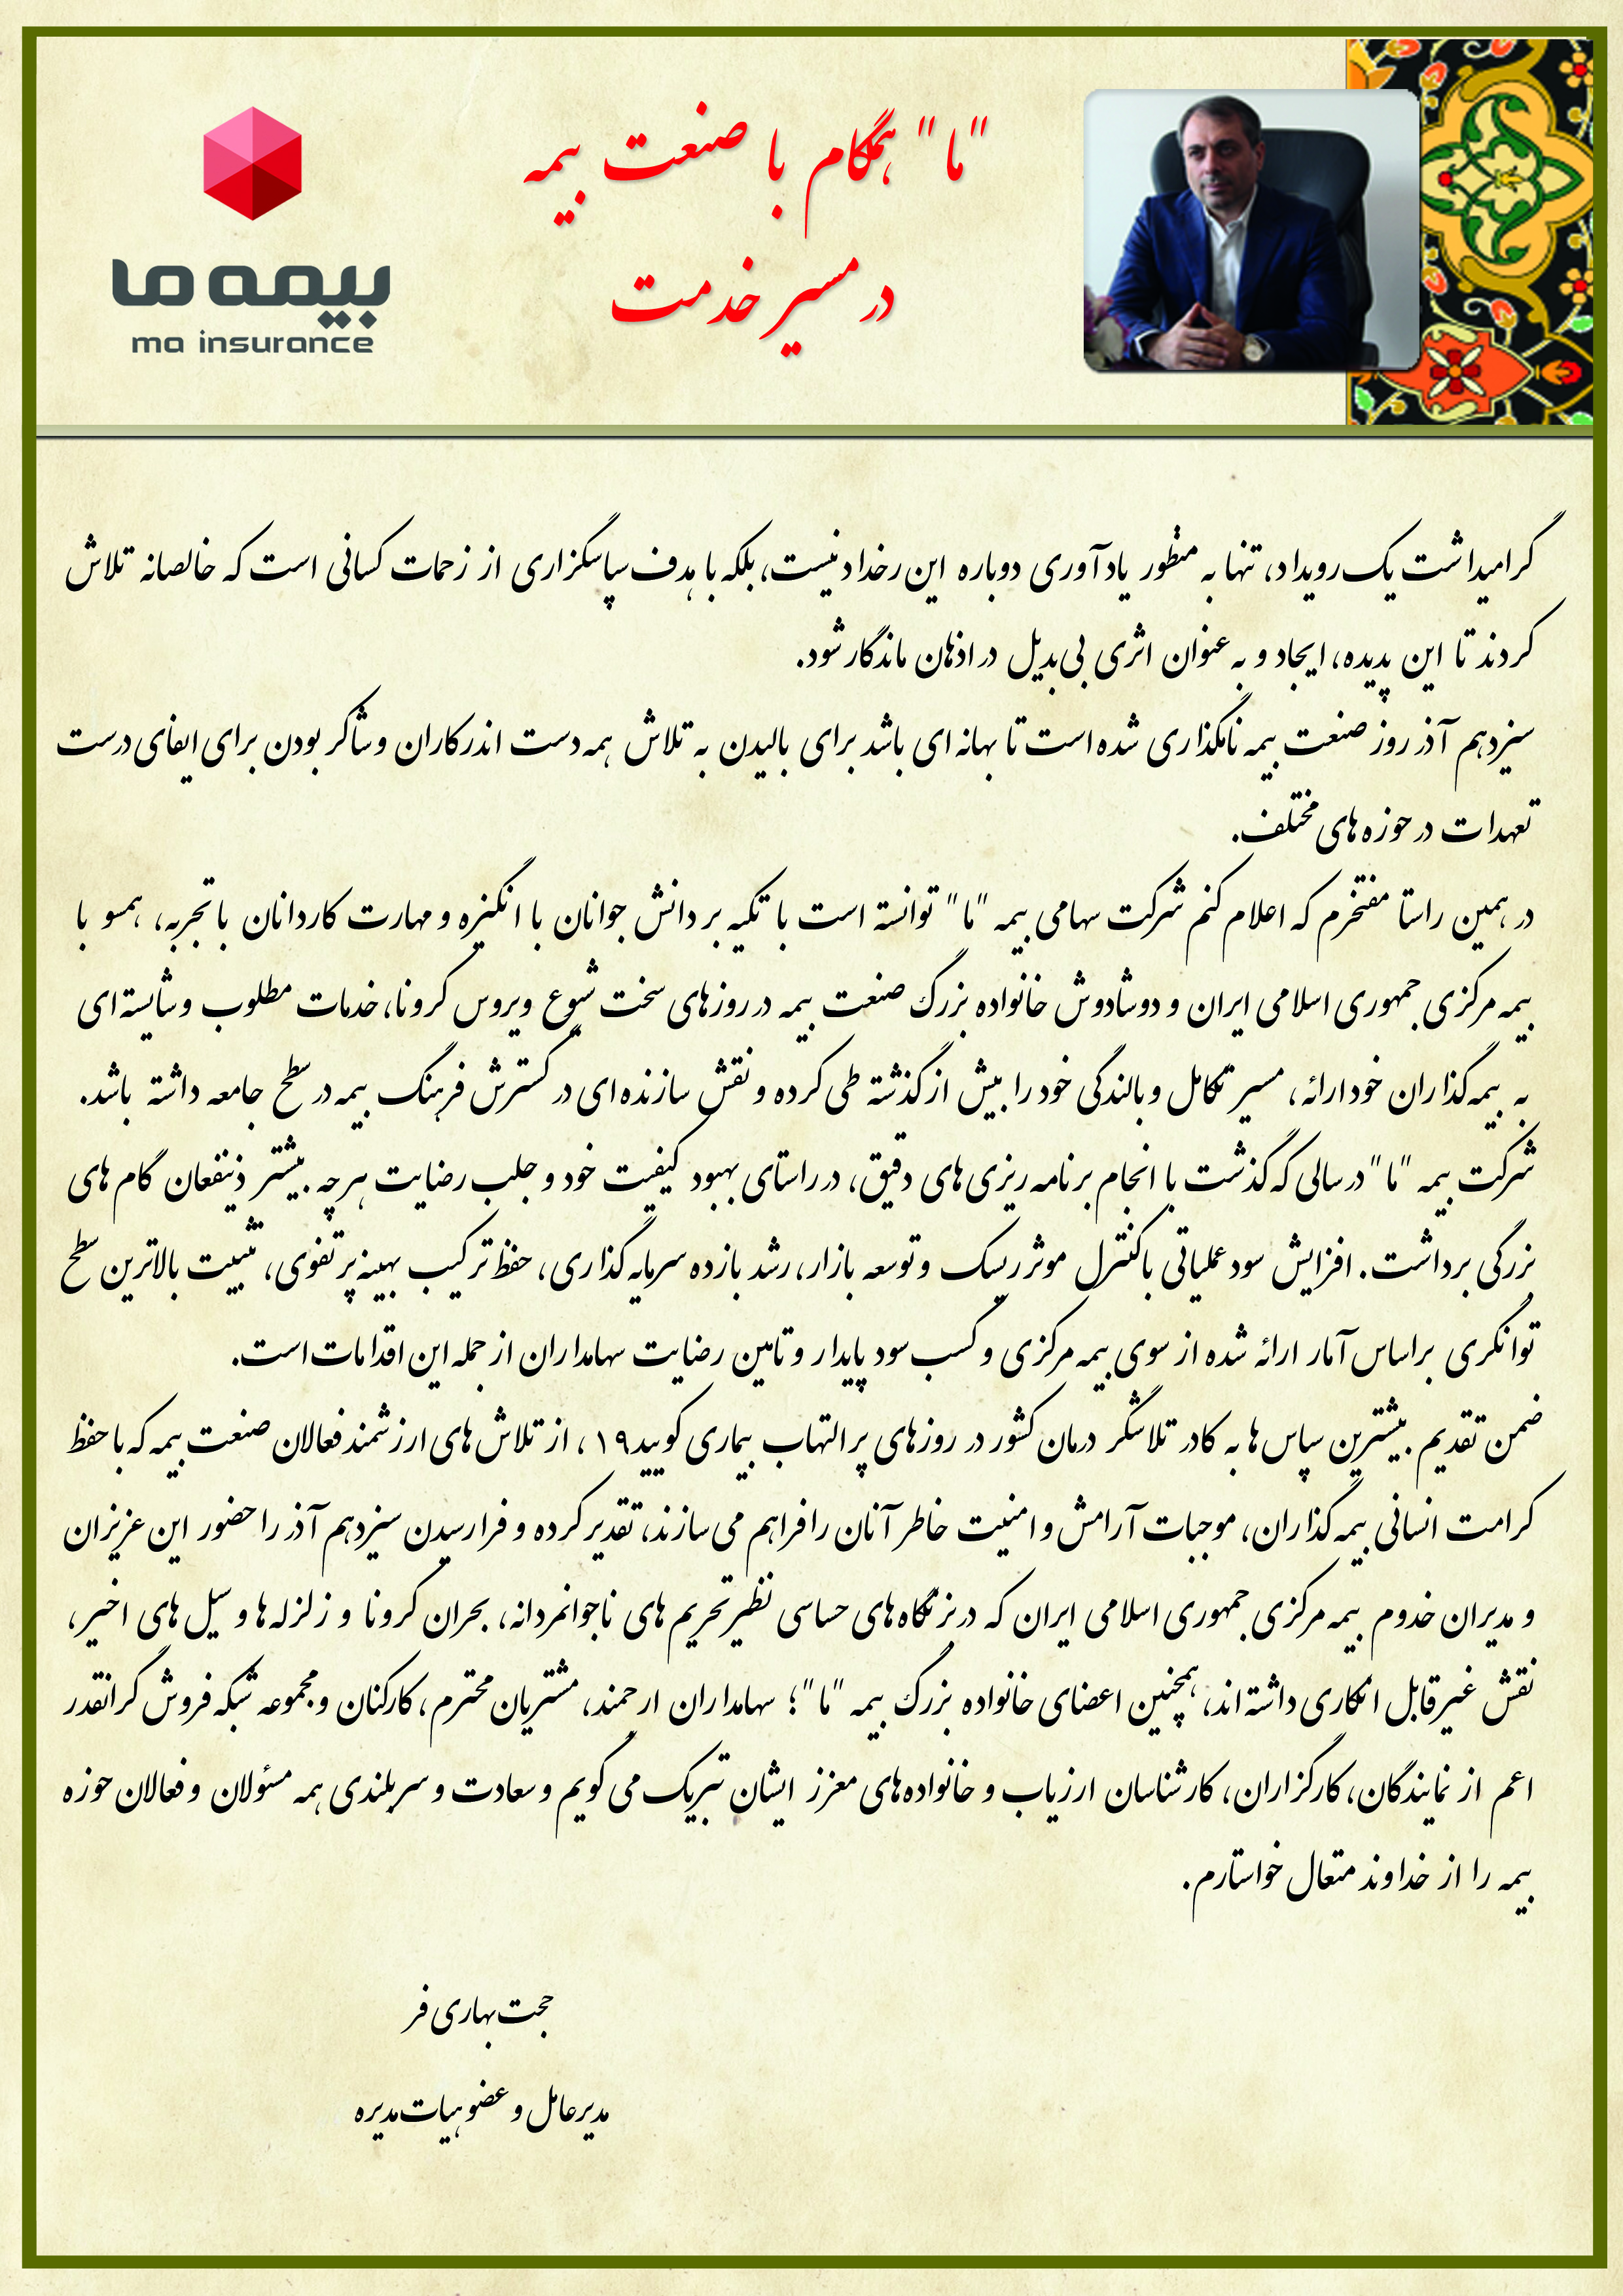 "ما" همگام با صنعت بیمه
در مسیر خدمت
بیمه ما
ma insurance
گرامیداشت یک رویداد، تنها به منظور یادآوری دوباره این رخداد نیست، بلکه با هدف سپاسگزاری از زحمات کسانی است که خالصانه تلاش
کردند تا این پدیده، ایجاد و به عنوان اثری بی‌بدیل در اذهان ماندگار شود.
سیزدهم آذر روز صنعت بیمه نامگذاری شده است تا بهانه ای باشد برای بالیدن به تلاش همه دست اندرکاران و شاکر بودن برای ایفای درست
تعهدات در حوزه های مختلف.
در همین راستا مفتخرم که اعلام کنم شرکت سهامی بیمه "ما" توانسته است با تکیه بر دانش جوانان با انگیزه و مهارت کاردانان با تجربه، همسو با
بیمه مرکزی جمهوری اسلامی ایران و دوشادوش خانواده بزرگ صنعت بیمه در روزهای سخت شیوع ویروس کرونا، خدمات مطلوب و شایسته ای
به بیمه گذاران خود ارائه، مسیر تکامل و بالندگی خود را بیش از گذشته طی کرده و نقش سازنده ای در گسترش فرهنگ بیمه در سطح جامعه داشته باشد.
شرکت بیمه "ما" در سالی که گذشت با انجام برنامه ریزی های دقیق، در راستای بهبود کیفیت خود و جلب رضایت هرچه بیشتر ذینفعان گام های
بزرگی برداشت. افزایش سود عملیاتی با کنترل موثر ریسک و توسعه بازار، رشد بازده سرمایه گذاری، حفظ ترکیب بهینه پرتفوی، تثبیت بالاترین سطح
توانگری براساس آمار ارائه شده از سوی بیمه مرکزی و کسب سود پایدار و تامین رضایت سهامداران از جمله این اقدامات است.
ضمن تقدیم بیشترین سپاس ها به کادر تلاشگر درمان کشور در روزهای پرالتهاب بیماری کویید۱۹، از تلاش های ارزشمند فعالان صنعت بیمه که با حفظ
کرامت انسانی بیمه گذاران، موجبات آرامش و امنیت خاطر آنان را فراهم می سازند، تقدیر کرده و فرارسیدن سیزدهم آذر را حضور این عزیزان
و مدیران خدوم بیمه مرکزی جمهوری اسلامی ایران که در بزنگاه های حساسی نظیر تحریم های ناجوانمردانه، بحران کرونا و زلزله ها و سیل های اخیر،
نقش غیرقابل انکاری داشته اند، همچنین اعضای خانواده بزرگ بیمه "ما"؛ سهامداران ارجمند، مشتریان محترم، کارکنان و مجموعه شبکه فروش گرانقدر
اعم از نمایندگان، کارگزاران، کارشناسان ارزیاب و خانواده های معزز ایشان تبریک می گویم و سعادت و سربلندی همه مسئولان و فعالان حوزه
بیمه را از خداوند متعال خواستارم.
حجت بهاری فر
مدیرعامل و عضو هیات مدیره